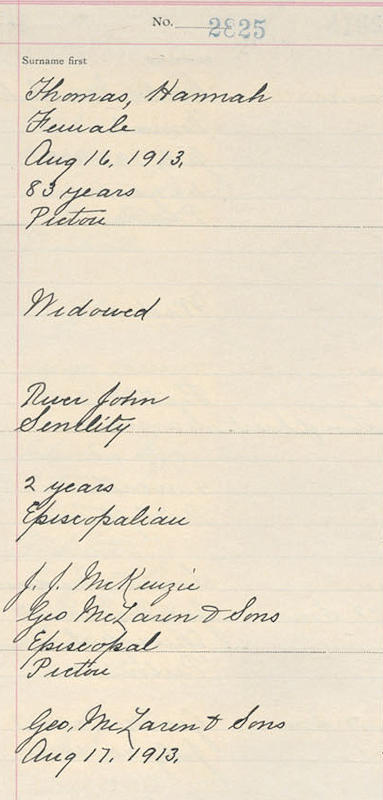 No. 2825
Surname first
Thomas, Hannah
Female
Aug 16, 1913.
83 years
Pictou
Widowed
River John
Senility
2 years
Episcopalian
J. J. McKenzie
Geo McLaren & Sons
Episcopal
Pictou
Geo. McLaren & Sons
Aug 17. 1913.